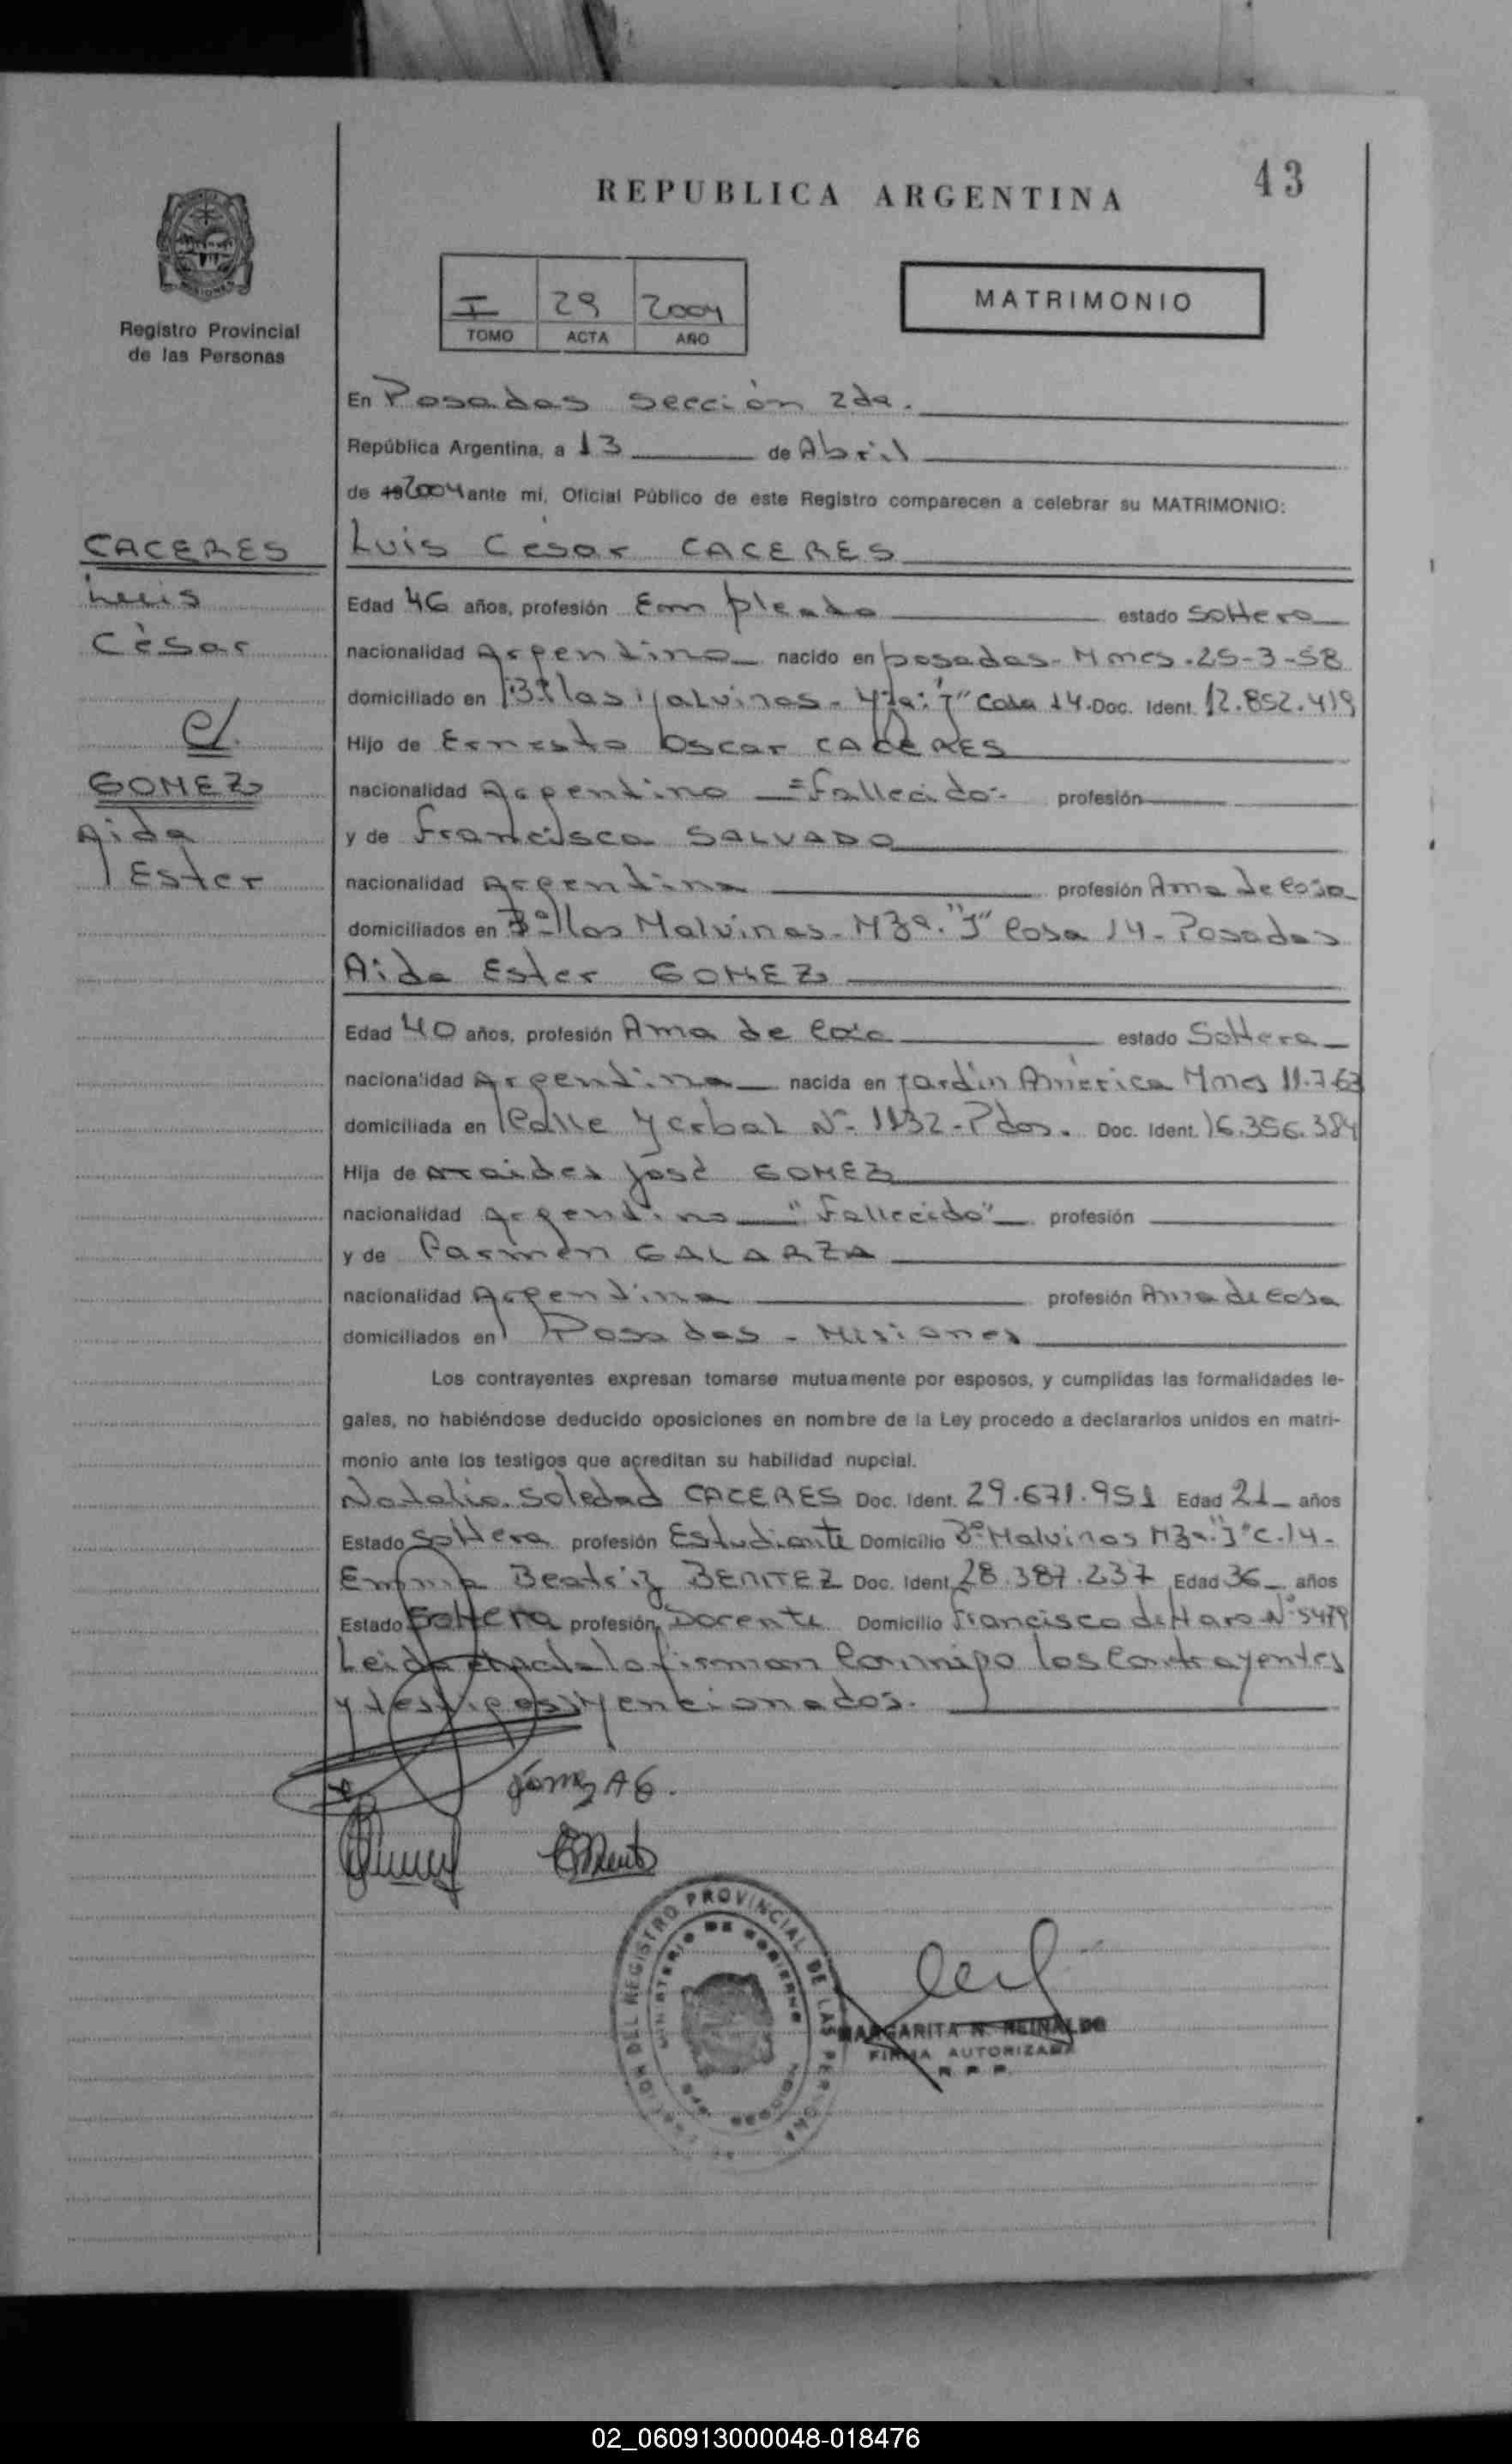 43
REPUBLICA ARGENTINA
Registro Provincial
de las Personas
I 29 2004
TOMO ACTA AÑO
MATRIMONIO
En Posadas sección 2da.
República Argentina, a 13 de Abril
de 19 2004 ante mí, Oficial Público de este Registro comparecen a celebrar su MATRIMONIO:
CACERES
Luis
César
c/.
GOMEZ
Aida
Ester
Luis César CACERES
Edad 46 años, profesión Empleado estado soltero
nacionalidad Argentino nacido en posadas - Mnes. 25-3-58
domiciliado en Bº las Malvinas - Mza: "J" Casa 14. Doc. Ident. 12.852.419
Hijo de Ernesto Oscar CACERES
nacionalidad Argentino =Fallecido= profesión
y de Francisca SALVADO
nacionalidad Argentina profesión Ama de Casa
domiciliados en Bº las Malvinas - Mzª. "J" Casa 14 - Posadas
Aida Ester GOMEZ
Edad 40 años, profesión Ama de Casa estado Soltera
nacionalidad Argentina nacida en Jardín América Mnes 11.7.63
domiciliada en Calle Yerbal Nº 1132 - Pdas. Doc. Ident. 16.356.384
Hija de José GOMEZ
nacionalidad Argentino "Fallecido" profesión
y de Carmen GALARZA
nacionalidad Argentina profesión Ama de Casa
domiciliados en Posadas - Misiones
Los contrayentes expresan tomarse mutuamente por esposos, y cumplidas las formalidades le-
gales, no habiéndose deducido oposiciones en nombre de la Ley procedo a declararlos unidos en matri-
monio ante los testigos que acreditan su habilidad nupcial.
Natalia Soledad CACERES Doc. Ident. 29.671.951 Edad 21 años
Estado Soltera profesión Estudiante Domicilio Bº Malvinas Mzª. "J" C.14-
Emma Beatriz BENITEZ Doc. Ident. 28.387.237 Edad 36 años
Estado Soltera profesión Docente Domicilio Francisco de Haro Nº 5479
Leida el acta la firman conmigo los contrayentes
y testigos mencionados.
Gomez A E.
REGISTRO PROVINCIAL DE LAS PERSONAS
MINISTERIO DE GOBIERNO
MARGARITA N. REINALDO
FIRMA AUTORIZADA
R P P
02_060913000048-018476